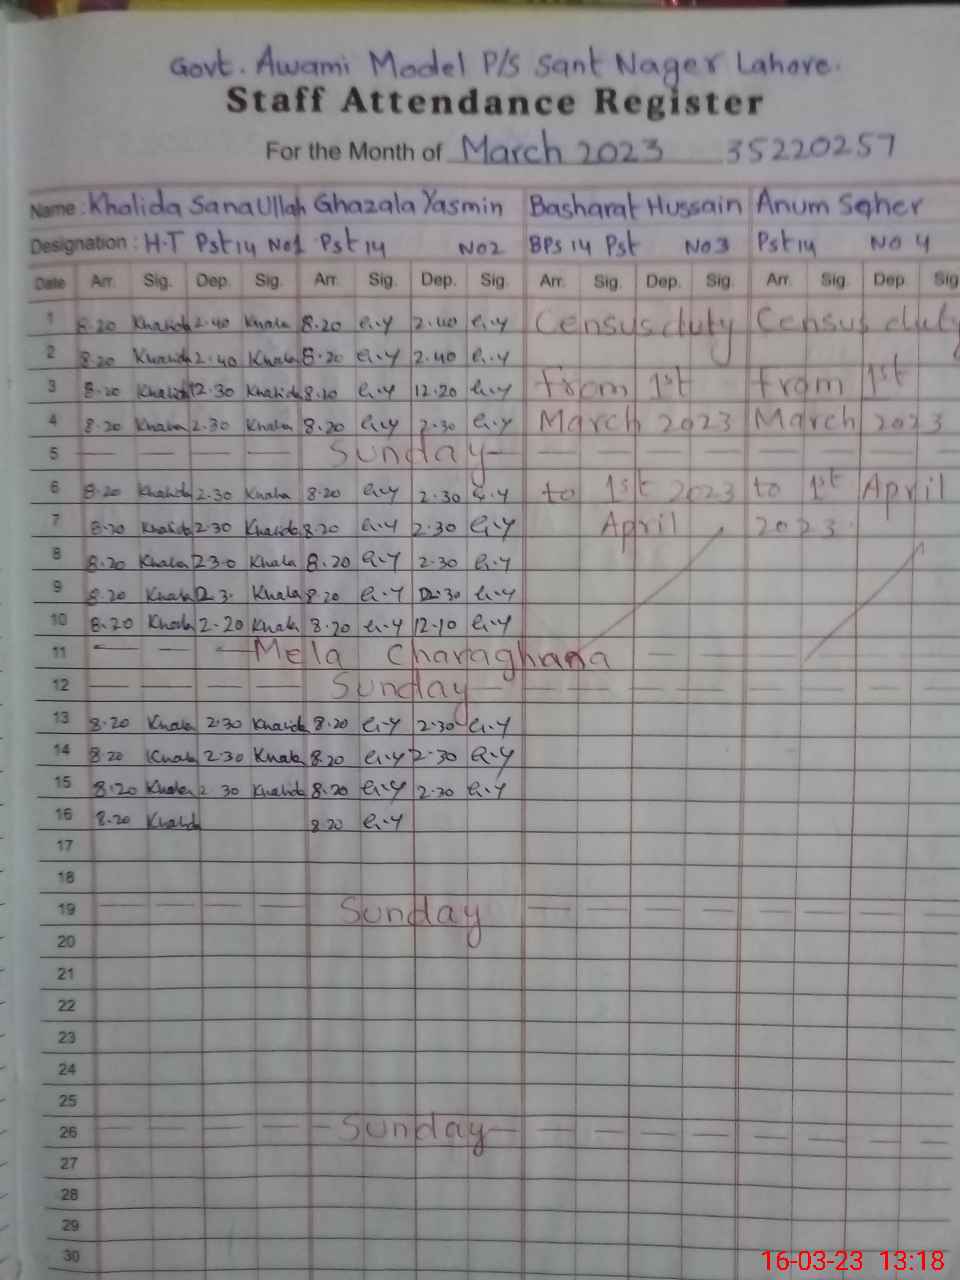 Govt. Awami Model P/S Sant Nager Lahore.
Staff Attendance Register
For the Month of March 2023 35220257
Name : Khalida SanaUllah Ghazala Yasmin Basharat Hussain Anum Seher
Designation : H.T Pst 14 No1 Pst 14 No2 BPS 14 Pst No3 Pst 14 No 4
Date Arr. Sig. Dep. Sig. Arr. Sig. Dep. Sig. Arr. Sig. Dep. Sig. Arr. Sig. Dep. Sig
1 8.20 Khalida 2.40 Khala 8.20 G.Y 2.40 G.Y Census duty Census duty
2 8.20 Khalida 2.40 Khala 8.20 G.Y 2.40 G.Y
3 8.20 Khalid 12.30 Khalida 8.20 G.Y 12.20 G.Y from 1st from 1st
4 8.20 Khala 2.30 Khala 8.20 G.Y 2.30 G.Y March 2023 March 2023
5 — — — — Sunday — — — — — — — — —
6 8.20 Khalida 2.30 Khala 8.20 G.Y 2.30 G.Y to 1st 2023 to 1st April
7 8.20 Khalida 2.30 Khalida 8.20 G.Y 2.30 G.Y April 2023.
8 8.20 Khala 230 Khala 8.20 G.Y 2.30 G.Y
9 8.20 Khala 2.3. Khala 8.20 G.Y 2.30 G.Y
10 8.20 Khala 2.20 Khala 8.20 G.Y 12.10 G.Y
11 — — — Mela Charaghana — — — — — —
12 — — — — Sunday — — — — — — — — —
13 8.20 Khala 2.30 Khalida 8.20 G.Y 2.30 G.Y
14 8.20 Khala 2.30 Khala 8.20 G.Y 2.30 G.Y
15 8.20 Khala 2.30 Khalida 8.20 G.Y 2.30 G.Y
16 8.20 Khalid 8.20 G.Y
17
18
19 — — — — Sunday — — — — — — — —
20
21
22
23
24
25
26 — — — — Sunday — — — — — — — — —
27
28
29
30
16-03-23 13:18